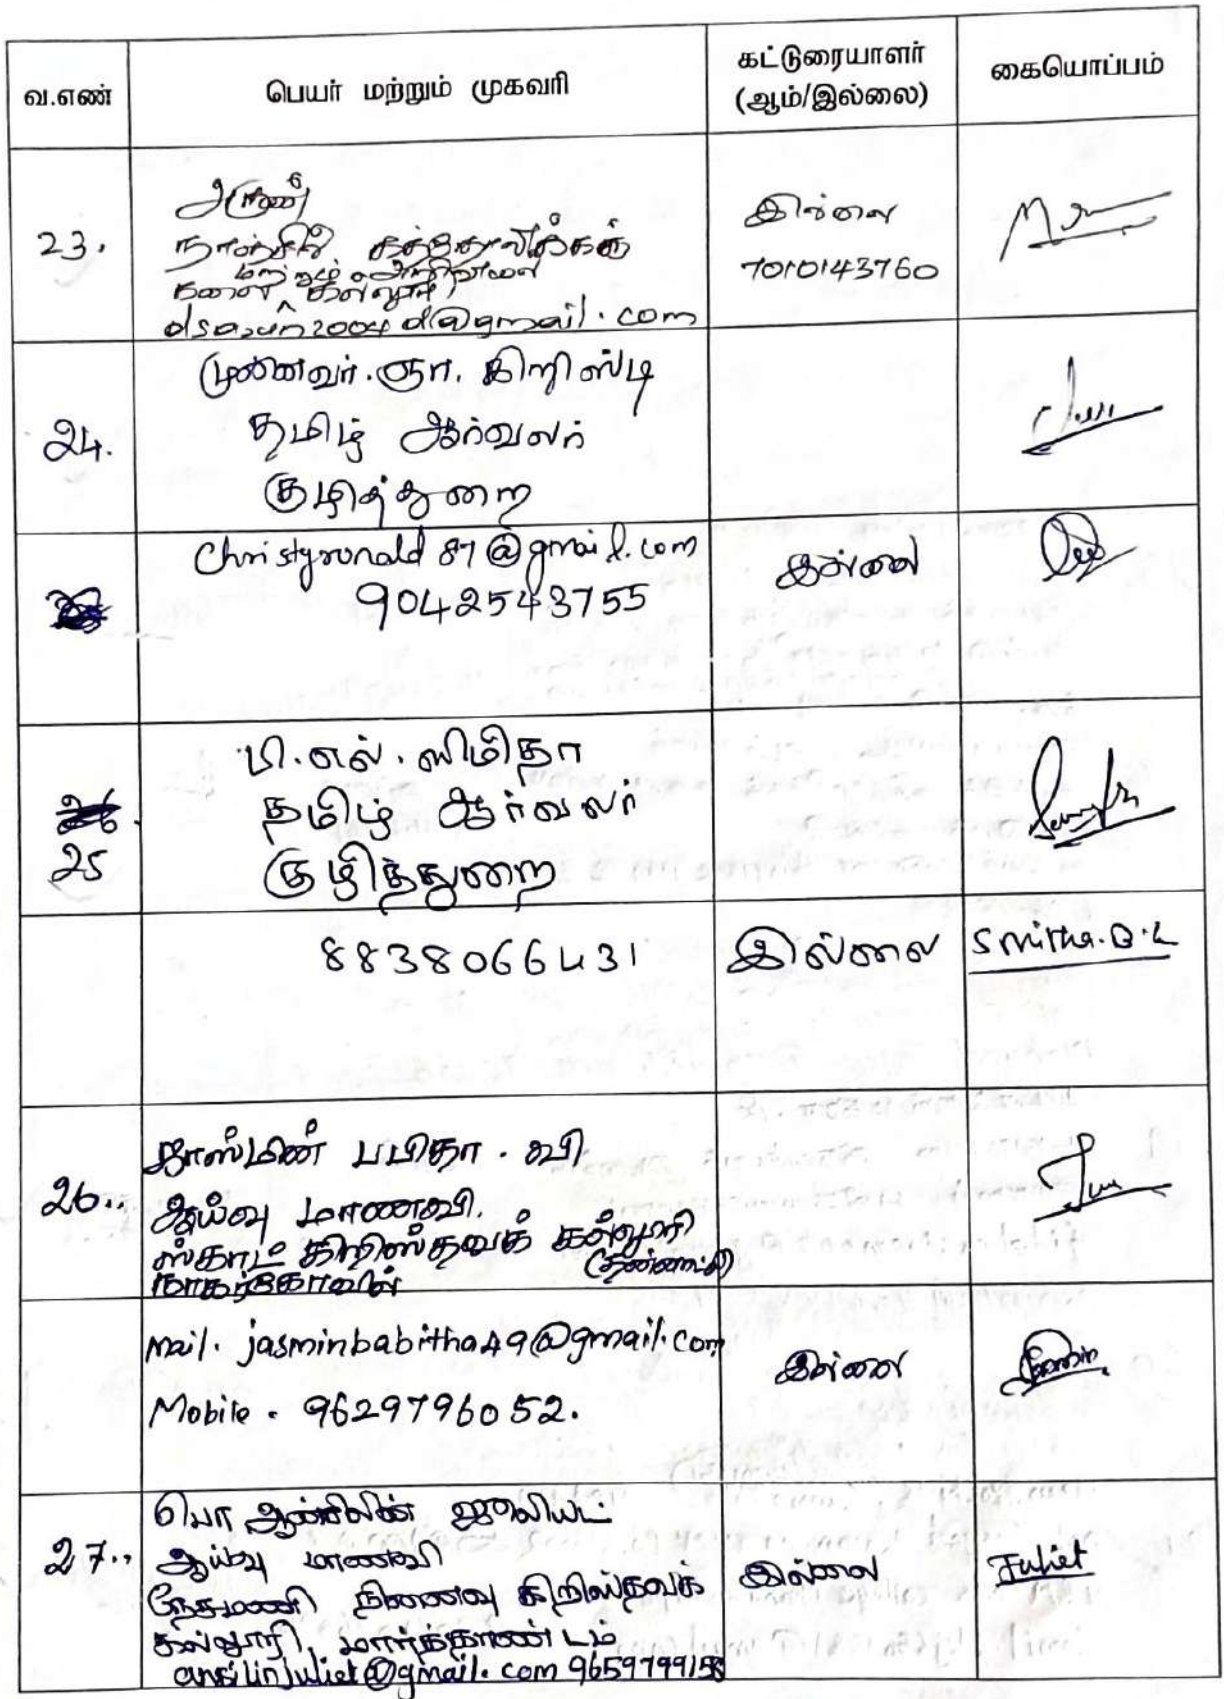 வ.எண் பெயர் மற்றும் முகவரி கட்டுரையாளர் (ஆம்/இல்லை) கையொப்பம்
23.
அருண்
நாஞ்சில் கத்தோலிக்கக்
மற்றும் அறிவியல்
கலை கல்லூரி
@gmail.com
இல்லை
7010143760
24.
முனைவர்.ஞா. கிறிஸ்டி
தமிழ் ஆர்வலர்
குழித்துறை
Christyronald87@gmail.com
9042543755
இல்லை
25
பி.எல். ஸ்மிதா
தமிழ் ஆர்வலர்
குழித்துறை
8838066431
இல்லை
Smitha.B.L
26..
ஜாஸ்மின் பபிதா . வி
ஆய்வு மாணவி.
ஸ்காட் கிறிஸ்தவக் கல்லூரி
(தன்னாட்சி)
நாகர்கோவில்
Mail. jasminbabitha49@gmail.com
Mobile. 9629796052.
இல்லை
27..
பொ ஆன்சிலின் ஜூலியட்
ஆய்வு மாணவி
நேசமணி நினைவு கிறிஸ்தவக்
கல்லூரி, மார்த்தாண்டம்
anslinjuliet@gmail.com
இல்லை
Juliet